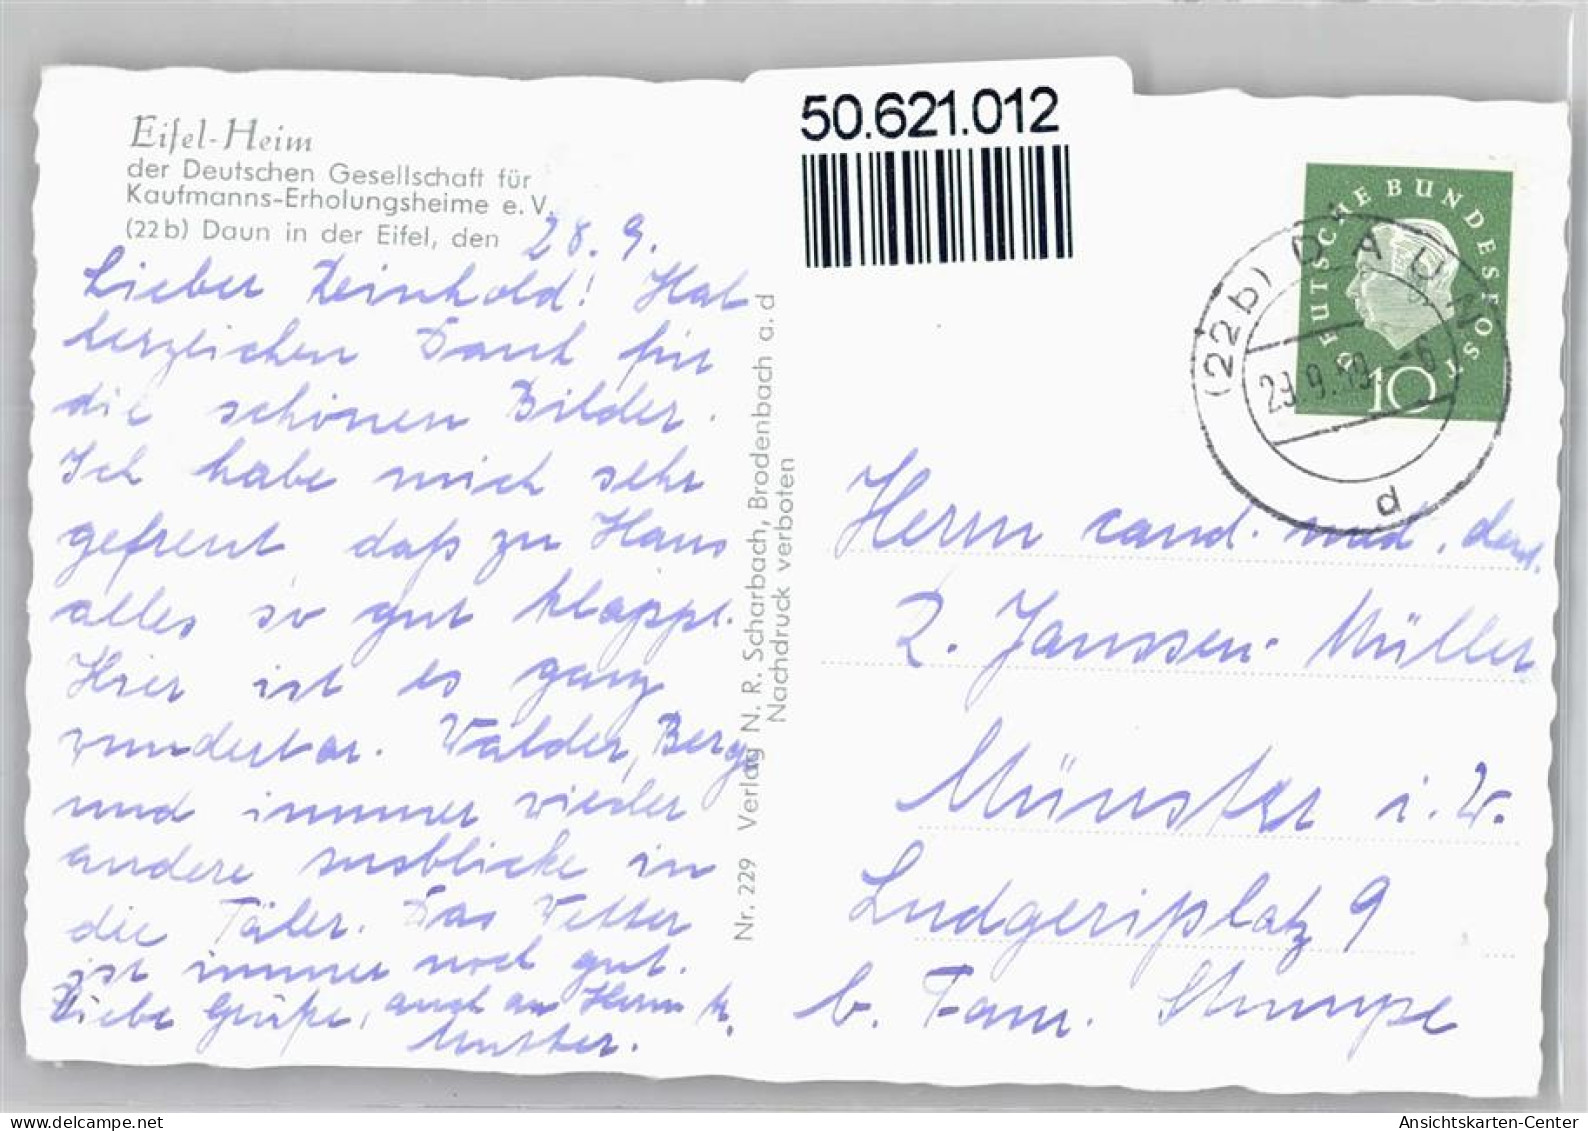 Eifel-Heim
der Deutschen Gesellschaft für
Kaufmanns-Erholungsheime e. V.
(22b) Daun in der Eifel, den 28. 9.
Lieber Reinhold! Hab
herzlichen Dank für
die schönen Bilder.
Ich habe mich sehr
gefreut daß zu Haus
alles so gut klappt.
Hier ist es ganz
wunderbar. Wälder, Berge
und immer wieder
andere Ausblicke in
die Täler. Das Wetter
ist immer noch gut.
Liebe Grüße, auch an Herrn
Mutter.
Nr. 229 Verlag N. R. Scharbach, Brodenbach a. d
Nachdruck verboten
50.621.012
DEUTSCHE BUNDESPOST
10
(22b) DAUN
29.9.59 -6
d
Herrn cand. med. dent.
R. Janssen-Müller
Münster i. W.
Ludgeriplatz 9
b. Fam. Stumpe
AnsichtsKarten-Center